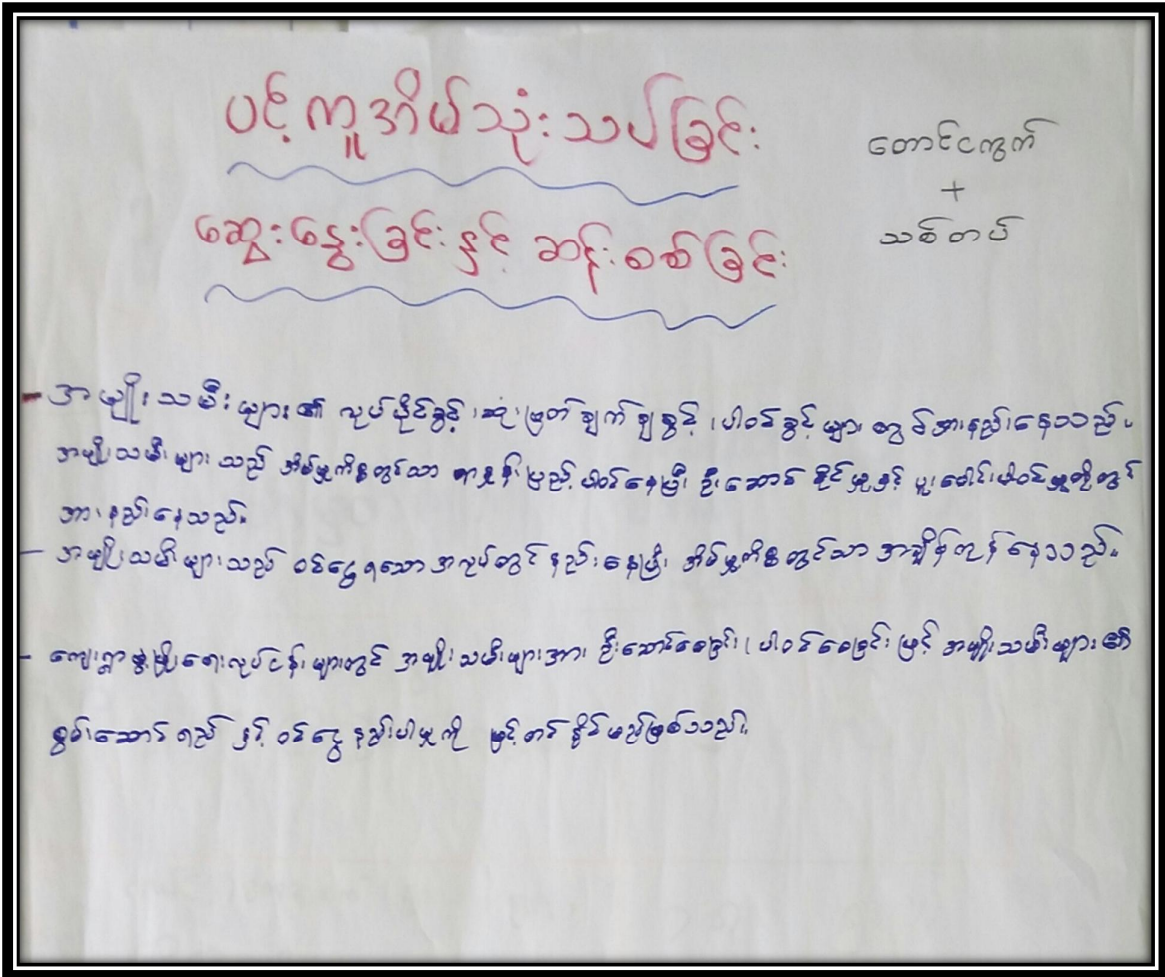 ပင့်ကူအိမ်သုံးသပ်ခြင်း
တောင်ငကွက်
+
သစ်တပ်
ဆွေးနွေးခြင်းနှင့် ဆန်းစစ်ခြင်း
- အမျိုးသမီးများ၏ လုပ်ပိုင်ခွင့်၊ ဆုံးဖြတ်ချက်ချခွင့်၊ ပါဝင်ခွင့်များတွင် အားနည်းနေသည်။
အမျိုးသမီးများသည် အိမ်မှုကိစ္စတွင်သာ ရာနှုန်းပြည့် ပါဝင်နေပြီး ဦးဆောင်နိုင်မှုနှင့် ပူးပေါင်းပါဝင်မှုတို့တွင်
အားနည်းနေသည်။
- အမျိုးသမီးများသည် ဝင်ငွေရသောအလုပ်တွင် နည်းနေပြီး အိမ်မှုကိစ္စတွင်သာ အချိန်ကုန်နေသည်။
- ကျေးရွာဖွံ့ဖြိုးရေးလုပ်ငန်းများတွင် အမျိုးသမီးများအား ဦးဆောင်စေခြင်း၊ ပါဝင်စေခြင်းဖြင့် အမျိုးသမီးများ၏
စွမ်းဆောင်ရည် နှင့် ဝင်ငွေနည်းပါးမှုကို မြှင့်တင်နိုင်မည်ဖြစ်သည်။